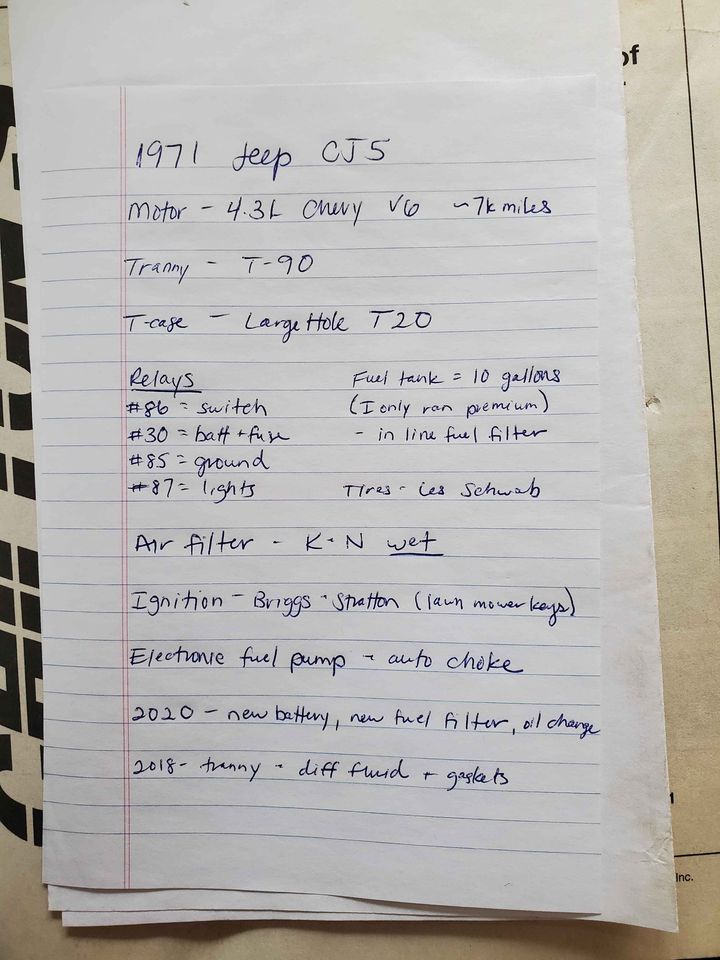 of
1971 Jeep CJ5
Motor - 4.3L Chevy V6 ~7k miles
Tranny - T-90
T-case - Large Hole T20
Relays
#86 = switch
#30 = batt + fuse
#85 = ground
#87 = lights
Fuel tank = 10 gallons
(I only ran premium)
- in line fuel filter
Tires - Les Schwab
Air filter - K+N wet
Ignition - Briggs + Stratton (lawn mower keys)
Electronic fuel pump + auto choke
2020 - new battery, new fuel filter, oil change
2018 - tranny + diff fluid + gaskets
Inc.